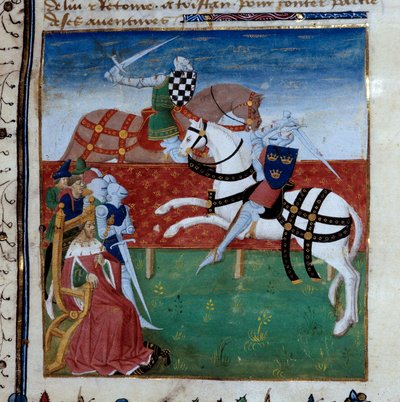 de lui & retorne a tristan pour conter partie
de ses auentures